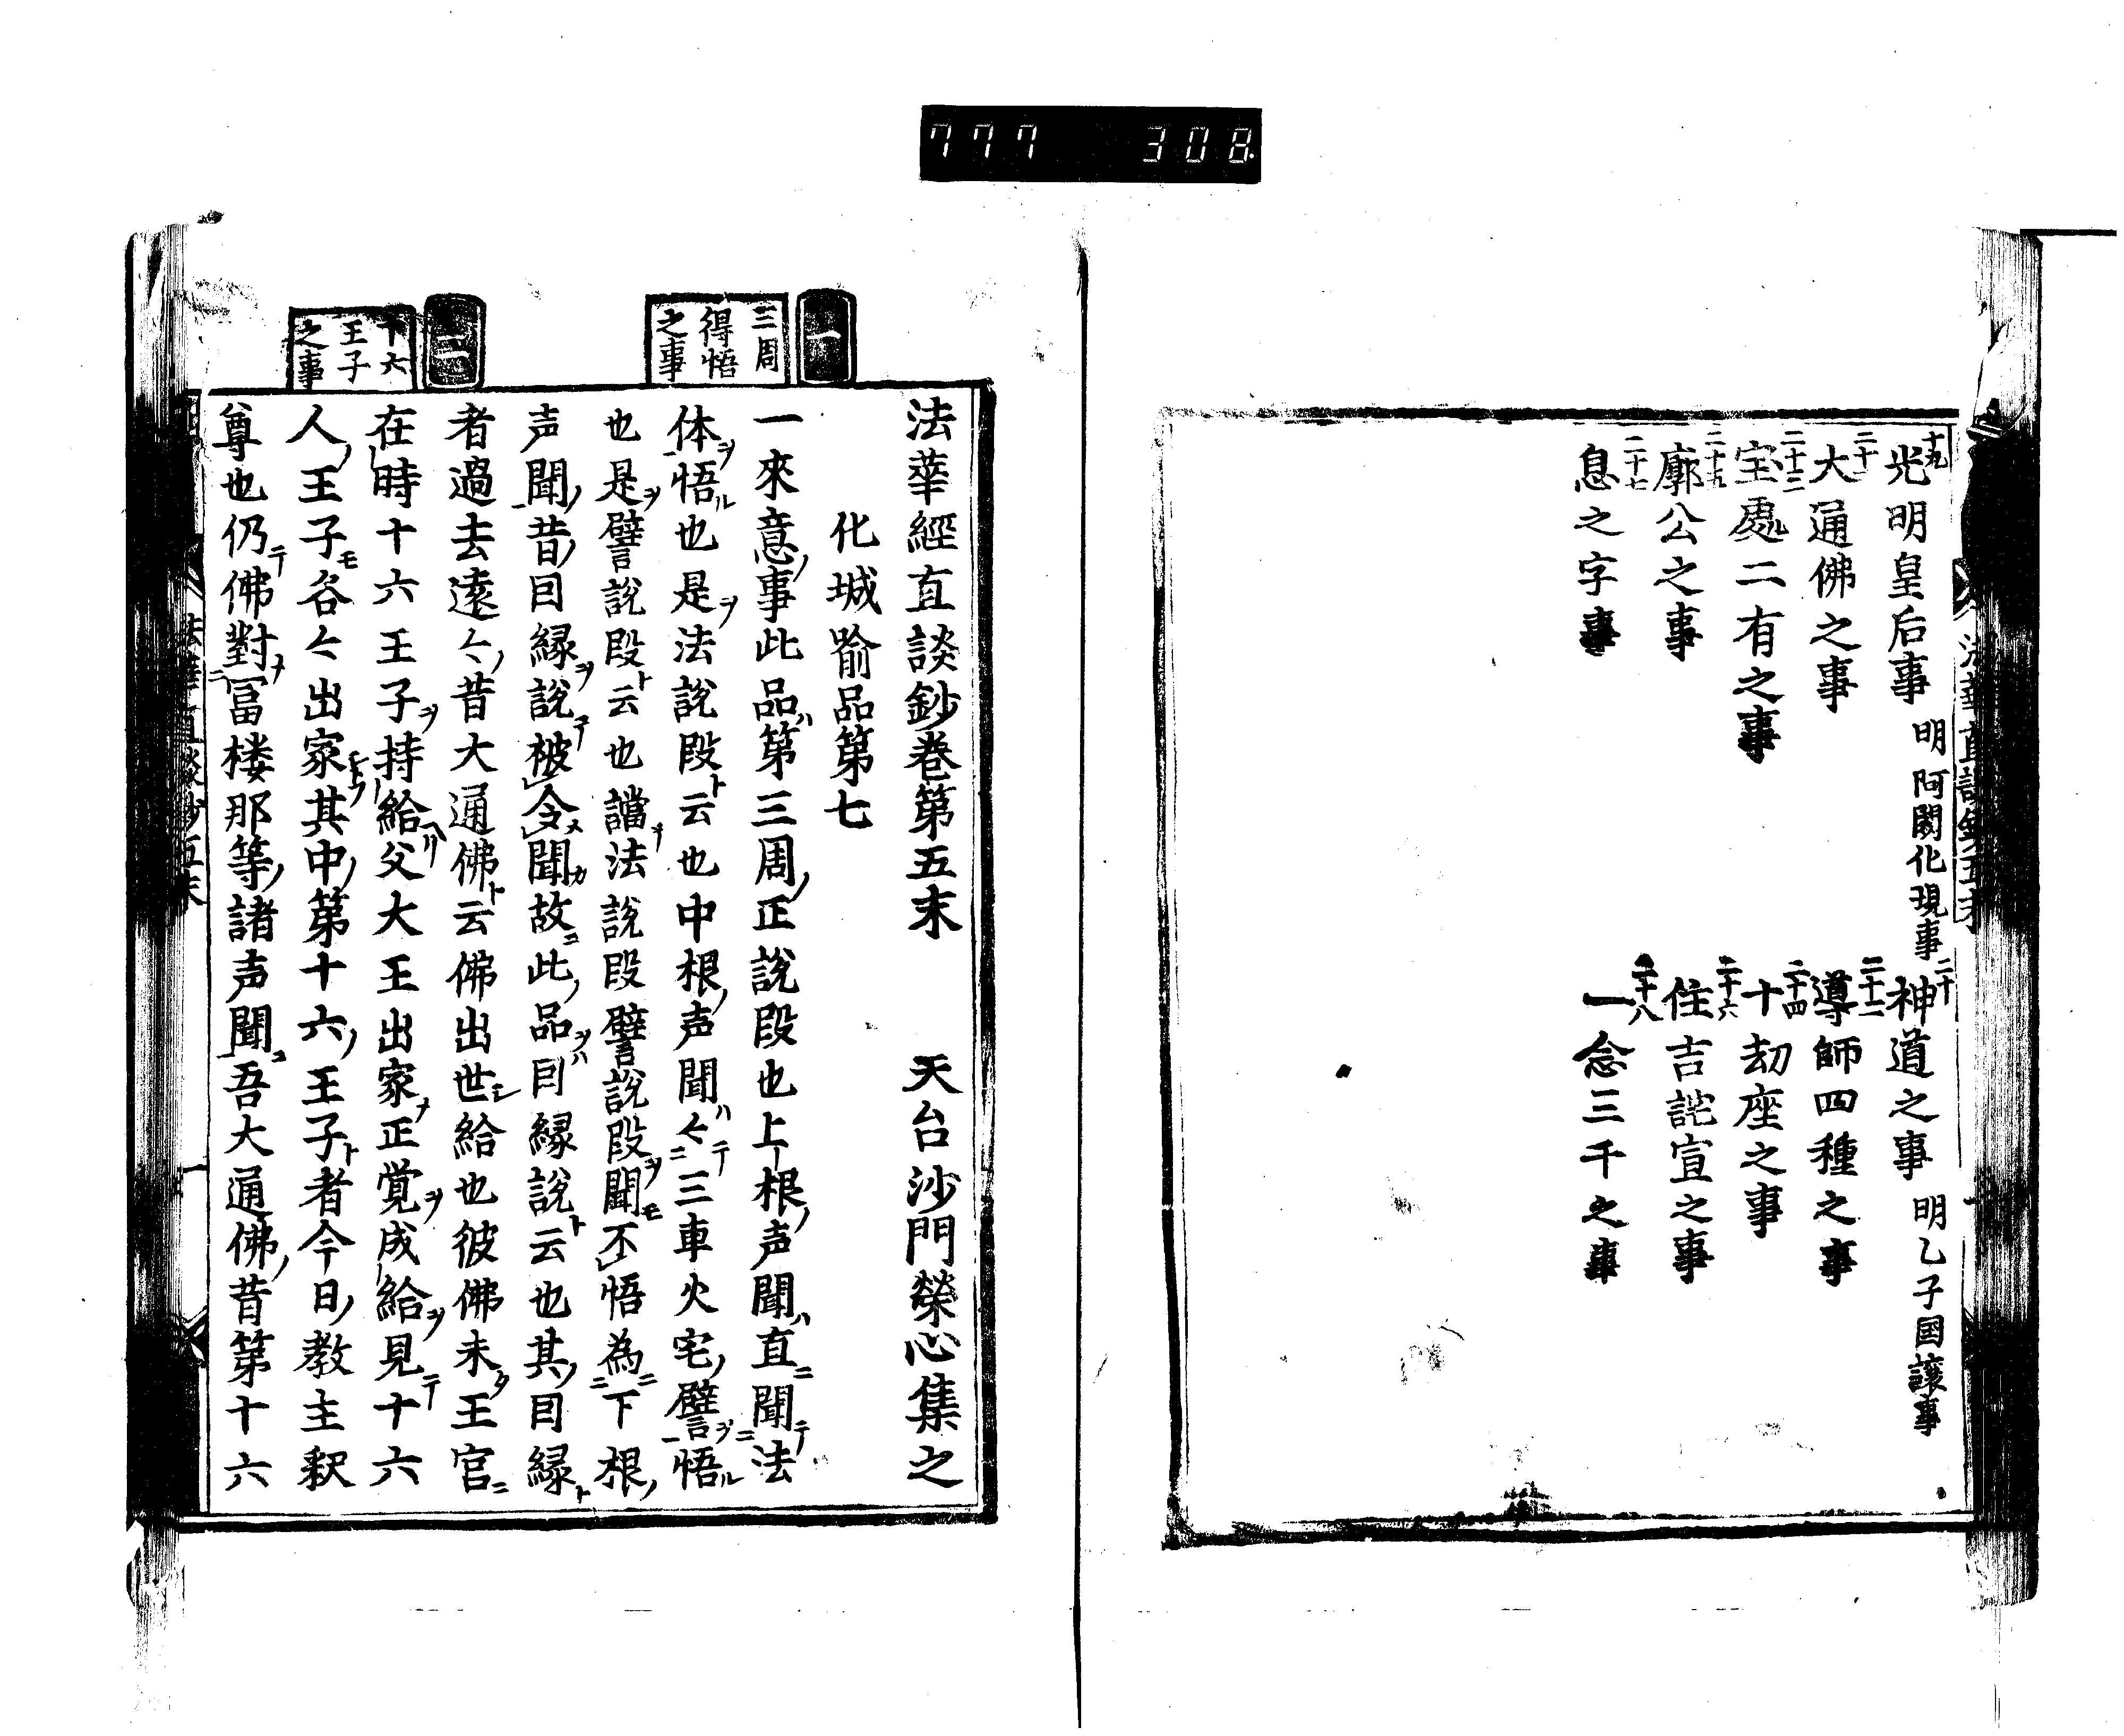 777 308
十九光明皇后事 明 阿閦化現事 二十神道之事 明 乙子国譲事
二十一大通佛之事 二十二導師四種之事
二十三宝處二有之事 二十四十劫座之事
二十五廓公之事 二十六住吉詫宣之事
二十七息之字事 二十八一念三千之事
法華經直談鈔卷第五末 天台沙門榮心集之
化城喻品第七
一
三周得悟之事
一來意ノ事此品ハ第三周ノ正說段也上根ノ声聞ハ直ニ聞テ法
体ヲ悟ル也是ヲ法說段ト云也中根ノ声聞ハ聞テ三車火宅ノ譬ヲ悟ル
也是ヲ譬說段ト云也讜法說段譬說段ヲ聞モ不悟為ニ下根ノ
声聞ノ昔ノ因縁ヲ說テ被令聞故ニ此ノ品ヲハ因縁說ト云也其ノ因縁ト
者過去遠々ノ昔大通佛ト云佛出世シ給也彼佛未タ王宮ニ
在時十六王子ヲ持給ヘリ父大王出家ナ正覚ヲ成給ヲ見テ十六
二
十六王子之事
人ノ王子モ各々出家其中ノ第十六ノ王子ト者今日ノ教主釈
尊也仍テ佛對冨楼那等ノ諸声聞ニ吾大通佛ノ昔第十六